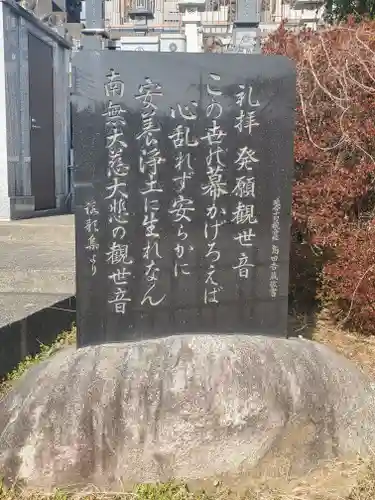 礼拝 発願観世音
この世の幕かげろえば
心乱れず安らかに
安養浄土に生れなん
南無大慈大悲の観世音